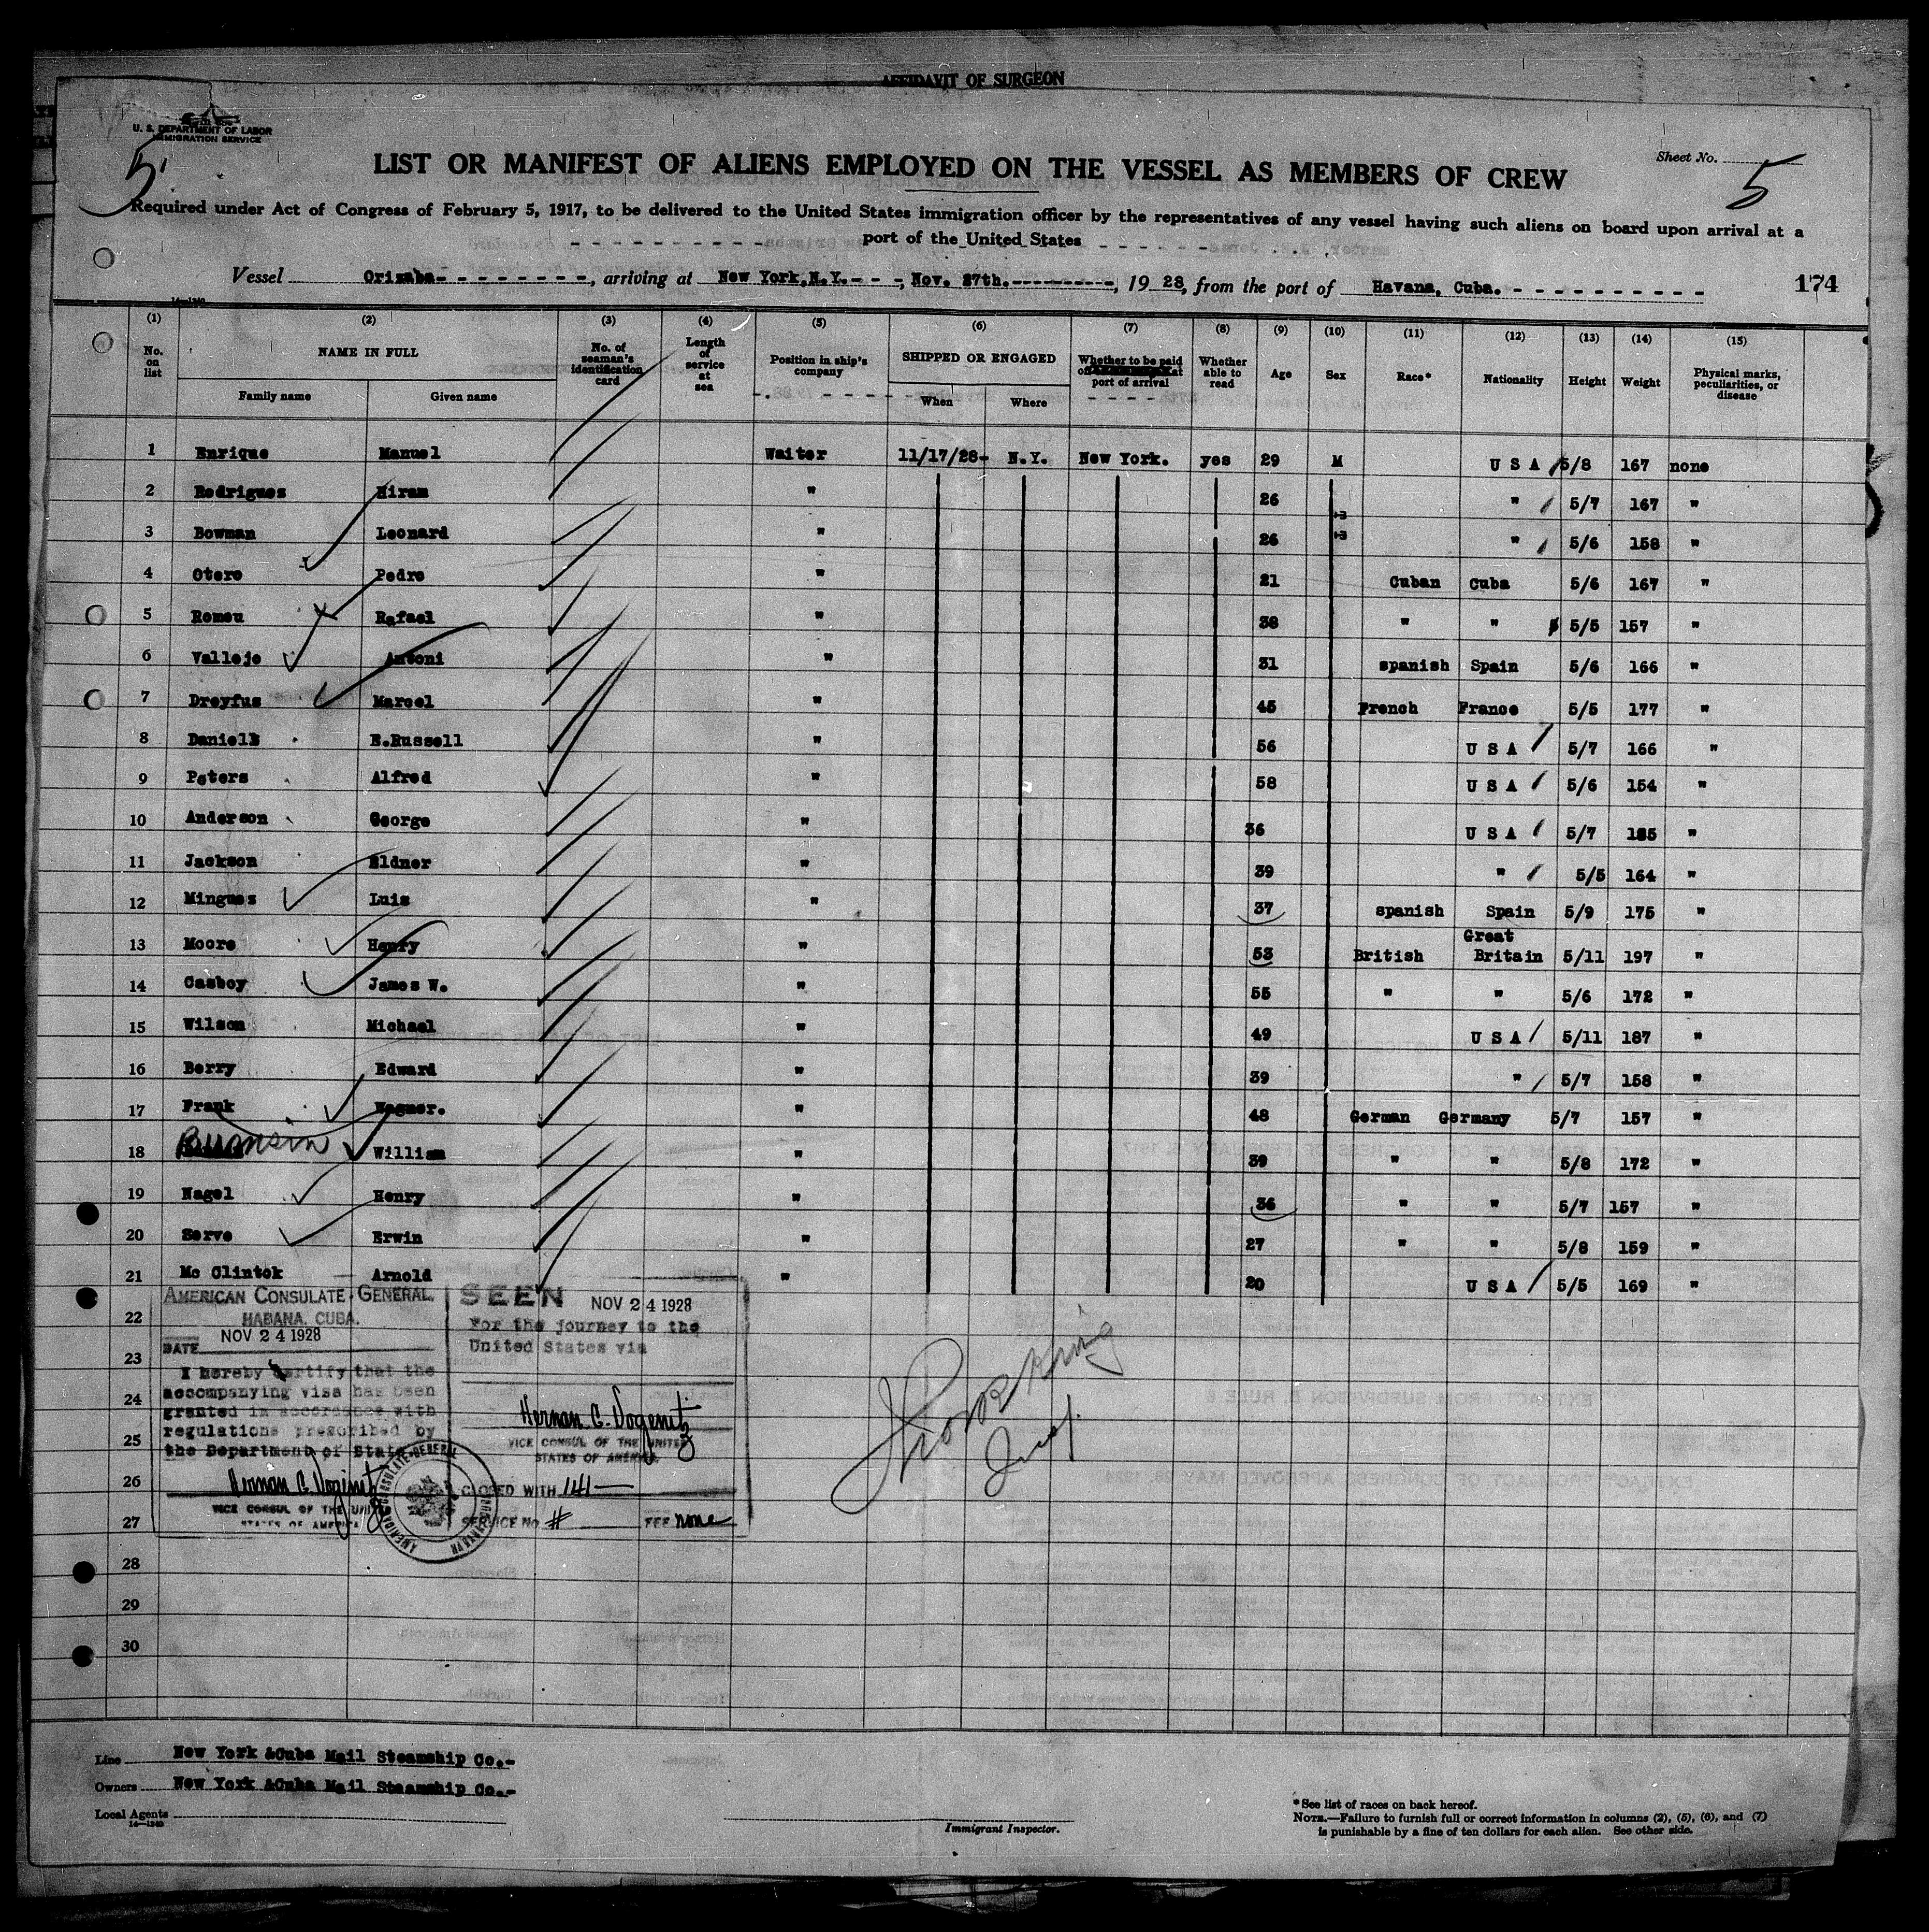 AFFIDAVIT OF SURGEON
U. S. DEPARTMENT OF LABOR
IMMIGRATION SERVICE
5
Sheet No. 5
LIST OR MANIFEST OF ALIENS EMPLOYED ON THE VESSEL AS MEMBERS OF CREW
Required under Act of Congress of February 5, 1917, to be delivered to the United States immigration officer by the representatives of any vessel having such aliens on board upon arrival at a
port of the United States
Vessel Orizaba, arriving at New York, N.Y. - - -, Nov. 27th. ---------, 1928, from the port of Havana, Cuba. - - - - - - - - - -
174
14—1240
(1) (2) (3) (4) (5) (6) (7) (8) (9) (10) (11) (12) (13) (14) (15)
No. on list NAME IN FULL Family name Given name No. of seaman's identification card Length of service at sea Position in ship's company SHIPPED OR ENGAGED When Where Whether to be paid off at port of arrival Whether able to read Age Sex Race* Nationality Height Weight Physical marks, peculiarities, or disease
1 Enrique Manuel Waiter 11/17/28- N.Y. New York. yes 29 M U S A 5/8 167 none
2 Rodrigues Hiram " 26 " 5/7 167 "
3 Bowman Leonard " 26 " 5/6 158 "
4 Otero Pedro " 21 Cuban Cuba 5/6 167 "
5 Romeu Rafael " 38 " " 5/5 157 "
6 Vallejo Antoni " 31 spanish Spain 5/6 166 "
7 Dreyfus Marcel " 45 French France 5/5 177 "
8 Daniell E.Russell " 56 U S A 5/7 166 "
9 Peters Alfred " 58 U S A 5/6 154 "
10 Anderson George " 36 U S A 5/7 185 "
11 Jackson Eldner " 39 " 5/5 164 "
12 Mingues Luis " 37 spanish Spain 5/9 175 "
13 Moore Henry " 53 British Great Britain 5/11 197 "
14 Casboy James W. " 55 " " 5/6 172 "
15 Wilson Michael " 49 U S A 5/11 187 "
16 Berry Edward " 39 " 5/7 158 "
17 Frank Wagner. " 48 German Germany 5/7 157 "
18 William " 39 " " 5/8 172 "
19 Nagel Henry " 36 " " 5/7 157 "
20 Serve Erwin " 27 " " 5/8 159 "
21 Mc Clintok Arnold " 20 U S A 5/5 169 "
22
23
24
25
26
27
28
29
30
AMERICAN CONSULATE-GENERAL,
HABANA, CUBA.
NOV 24 1928
DATE
I hereby certify that the
accompanying visa has been
granted in accordance with
regulations prescribed by
the Department of State.
VICE CONSUL OF THE UNITED
STATES OF AMERICA
SEEN NOV 24 1928
For the journey to the
United States via
VICE CONSUL OF THE UNITED
STATES OF AMERICA
CLOSED WITH 141
SERVICE NO # FEE none
Line New York &Cuba Mail Steamship Co.-
Owners New York &Cuba Mail Steamship Co.-
Local Agents
14—1240
Immigrant Inspector.
*See list of races on back hereof.
NOTE.—Failure to furnish full or correct information in columns (2), (5), (6), and (7)
is punishable by a fine of ten dollars for each alien. See other side.